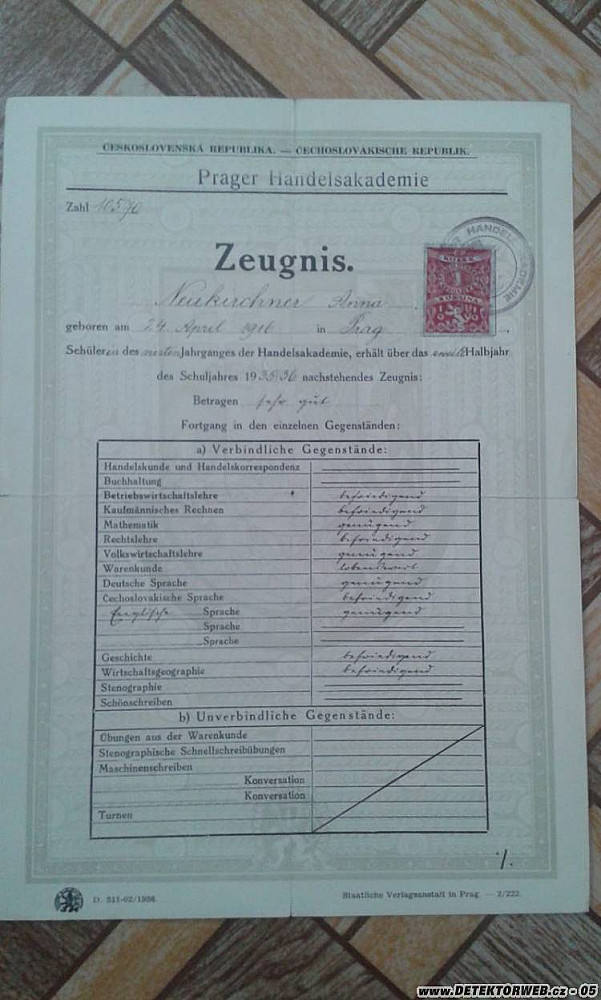 ČESKOSLOVENSKÁ REPUBLIKA. — ČECHOSLOVAKISCHE REPUBLIK.
Prager Handelsakademie
Zahl 10570
Zeugnis.
Neukirchner Anna
geboren am 24. April 1916 in Prag
Schülerin des vierten Jahrganges der Handelsakademie, erhält über das zweite Halbjahr
des Schuljahres 1935/36 nachstehendes Zeugnis:
Betragen sehr gut
Fortgang in den einzelnen Gegenständen:
a) Verbindliche Gegenstände:
Handelskunde und Handelskorrespondenz
Buchhaltung
Betriebswirtschaftslehre befriedigend
Kaufmännisches Rechnen befriedigend
Mathematik genügend
Rechtslehre befriedigend
Volkswirtschaftslehre genügend
Warenkunde lobenswert
Deutsche Sprache genügend
Čechoslovakische Sprache befriedigend
Englische Sprache genügend
Sprache
Sprache
Geschichte befriedigend
Wirtschaftsgeographie befriedigend
Stenographie
Schönschreiben
b) Unverbindliche Gegenstände:
Übungen aus der Warenkunde
Stenographische Schnellschreibübungen
Maschinenschreiben
Konversation
Konversation
Turnen
./.
D. 511-02/1936.
Staatliche Verlagsanstalt in Prag. — 2/222.
www.DETEKTORWEB.cz - 05